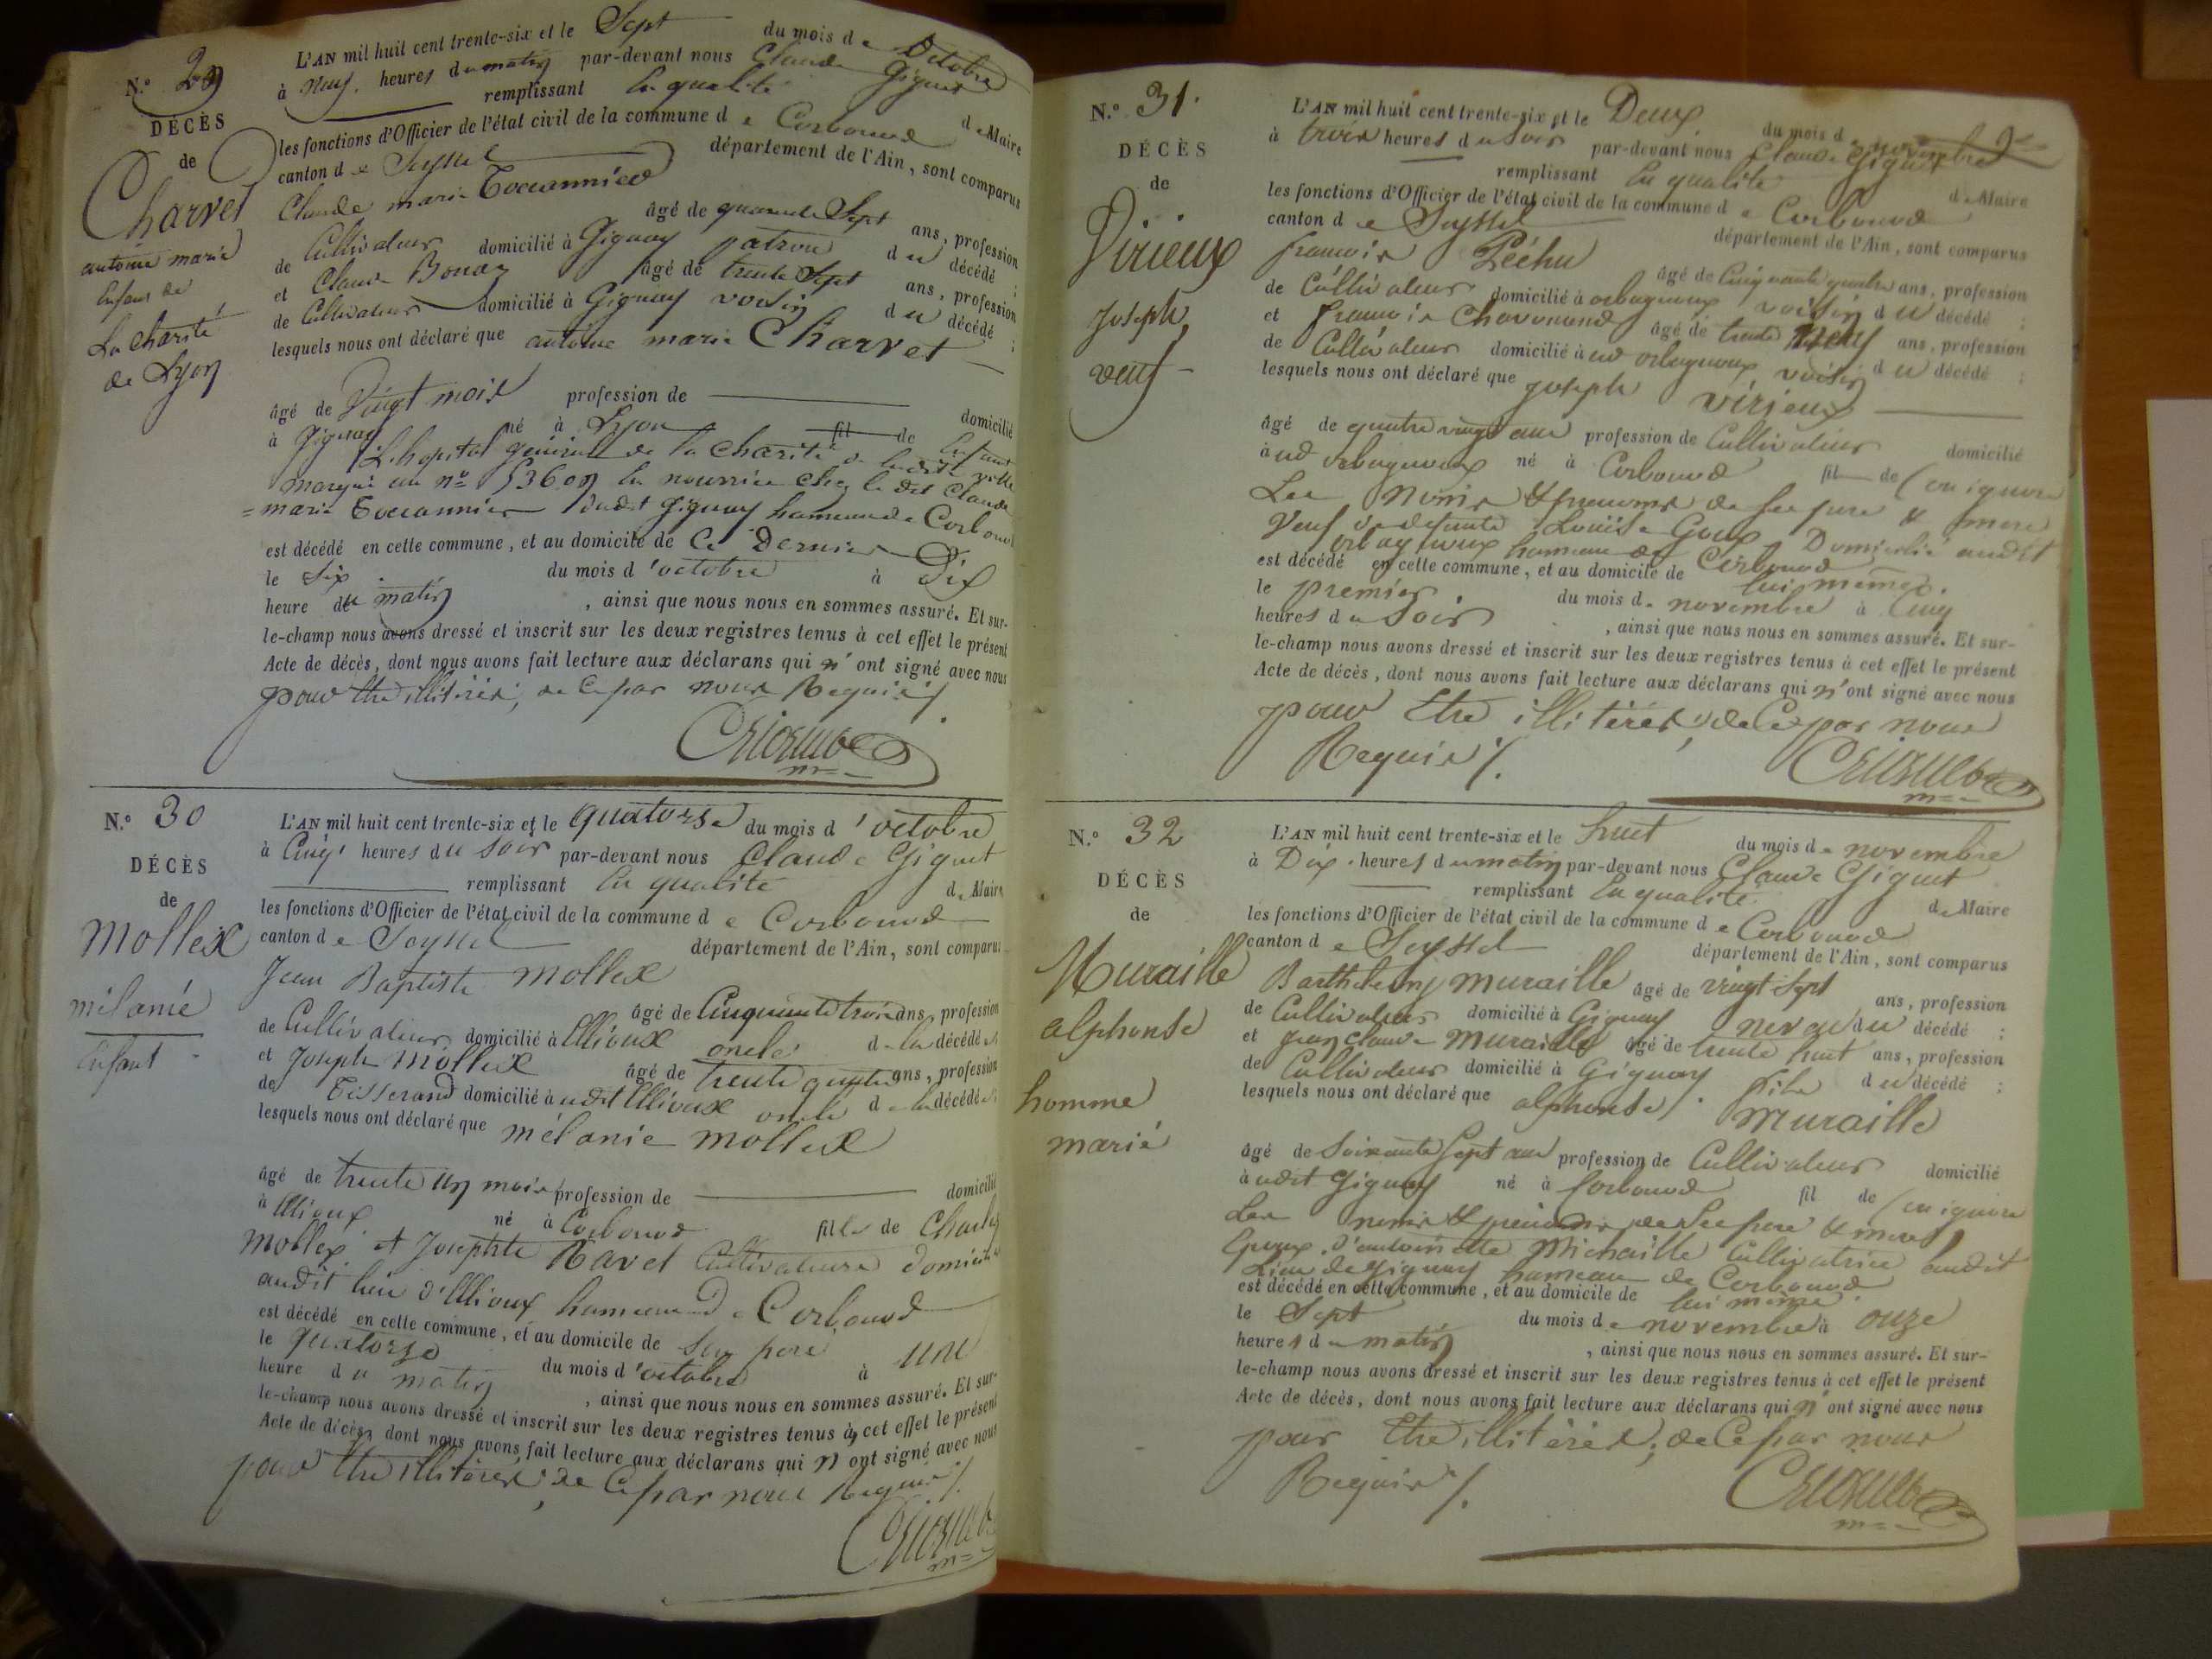 N.° 29
DÉCÈS
de
Charvet
antoine marie
Enfant de
La charité
de Lyon
L'AN mil huit cent trente-six et le Sept du mois de Octobre
à neuf heures du matin par-devant nous Claude Giguet
remplissant la qualité de Maire
les fonctions d'Officier de l'état civil de la commune de Corbonod
canton de Seyssel département de l'Ain, sont comparus
Claude marie Toccannier
âgé de quarante Sept ans, profession
de Cultivateur domicilié à Gignay patron du décédé ;
et Claude Bonaz âgé de trente Sept ans, profession
de Cultivateur domicilié à Gignay voisin du décédé ;
lesquels nous ont déclaré que antoine marie Charvet
âgé de Vingt mois profession de domicilié
à Gignay né à Lyon fil de Enfant
L'hopital général de la Charité de ladite ville
marqué au n° 53609 en nourrice chez le dit Claude
= marie Toccannier dudit Gignay hameau de Corbonod
est décédé en cette commune, et au domicile de Ce Dernier
le Six du mois d'octobre à Dix
heure du matin, ainsi que nous nous en sommes assuré. Et sur-
le-champ nous avons dressé et inscrit sur les deux registres tenus à cet effet le présent
Acte de décès, dont nous avons fait lecture aux déclarans qui n'ont signé avec nous
pour être illitérés, de Ce par nous Requis /.
N.° 30
DÉCÈS
de
Mollex
mélanie
Enfant
L'AN mil huit cent trente-six et le quatorze du mois d'octobre
à Cinq heures du soir par-devant nous Claude Giguet
remplissant la qualité de Maire
les fonctions d'Officier de l'état civil de la commune de Corbonod
canton de Seyssel département de l'Ain, sont comparus
Jean Baptiste Mollex
âgé de Cinquante trois ans, profession
de Cultivateur domicilié à Ellioux oncle de la décédée ;
et Joseph Mollex âgé de trente quatre ans, profession
de Tisserand domicilié à udit Ellioux oncle de la décédée ;
lesquels nous ont déclaré que mélanie mollex
âgé de trente un mois profession de domicilié
à Ellioux né à Corbonod fille de Charles
Mollex et Josephte Ravet Cultivateurs Domiciliés
audit lieu d'Ellioux hameau de Corbonod
est décédé en cette commune, et au domicile de Son père
le quatorze du mois d'octobre à une
heure du matin, ainsi que nous nous en sommes assuré. Et sur-
le-champ nous avons dressé et inscrit sur les deux registres tenus à cet effet le présent
Acte de décès, dont nous avons fait lecture aux déclarans qui n'ont signé avec nous
pour être illitérés, de Ce par nous Requis /.
N.° 31.
DÉCÈS
de
Virieux
Joseph
veuf
L'AN mil huit cent trente-six et le Deux du mois de novembre
à trois heures du soir par-devant nous Claude Giguet
remplissant la qualité de Maire
les fonctions d'Officier de l'état civil de la commune de Corbonod
canton de Seyssel département de l'Ain, sont comparus
françois Péchu
âgé de Cinquante quatre ans, profession
de Cultivateur domicilié à orbagnoux voisin du décédé ;
et françois Chavonand âgé de trente neuf ans, profession
de Cultivateur domicilié à ud orbagnoux voisin du décédé ;
lesquels nous ont déclaré que joseph virieux
âgé de quatre vingt ans profession de Cultivateur domicilié
à ud orbagnoux né à Corbonod fil de (on ignore
Les noms & prenoms de Ses père & mere
Veuf de defunte Louise Goux, Domicilié audit
orbagnoux hameau de Corbonod
est décédé en cette commune, et au domicile de lui même.
le premier du mois de novembre à Cinq
heures du soir, ainsi que nous nous en sommes assuré. Et sur-
le-champ nous avons dressé et inscrit sur les deux registres tenus à cet effet le présent
Acte de décès, dont nous avons fait lecture aux déclarans qui n'ont signé avec nous
pour être illitérés, de Ce par nous
Requis /.
N.° 32
DÉCÈS
de
Muraille
alphonse
homme
marié
L'AN mil huit cent trente-six et le huit du mois de novembre
à Dix heures du matin par-devant nous Claude Giguet
remplissant la qualité de Maire
les fonctions d'Officier de l'état civil de la commune de Corbonod
canton de Seyssel département de l'Ain, sont comparus
Barthelemy muraille âgé de vingt Sept ans, profession
de Cultivateur domicilié à Gignay neveu du décédé ;
et jean Claude Muraille âgé de trente huit ans, profession
de Cultivateur domicilié à Gignay fils du décédé ;
lesquels nous ont déclaré que alphonse Muraille
âgé de Soixante Sept ans profession de Cultivateur domicilié
à udit Gignay né à Corbonod fil de (on ignore
Les noms & prenoms de Ses père & mere)
Epoux d'antoinette Michaille Cultivatrice audit
Lieu de Gignay hameau de Corbonod
est décédé en cette commune, et au domicile de lui même
le Sept du mois de novembre à onze
heures du matin, ainsi que nous nous en sommes assuré. Et sur-
le-champ nous avons dressé et inscrit sur les deux registres tenus à cet effet le présent
Acte de décès, dont nous avons fait lecture aux déclarans qui n'ont signé avec nous
pour être illitérés, de Ce par nous
Requis /.